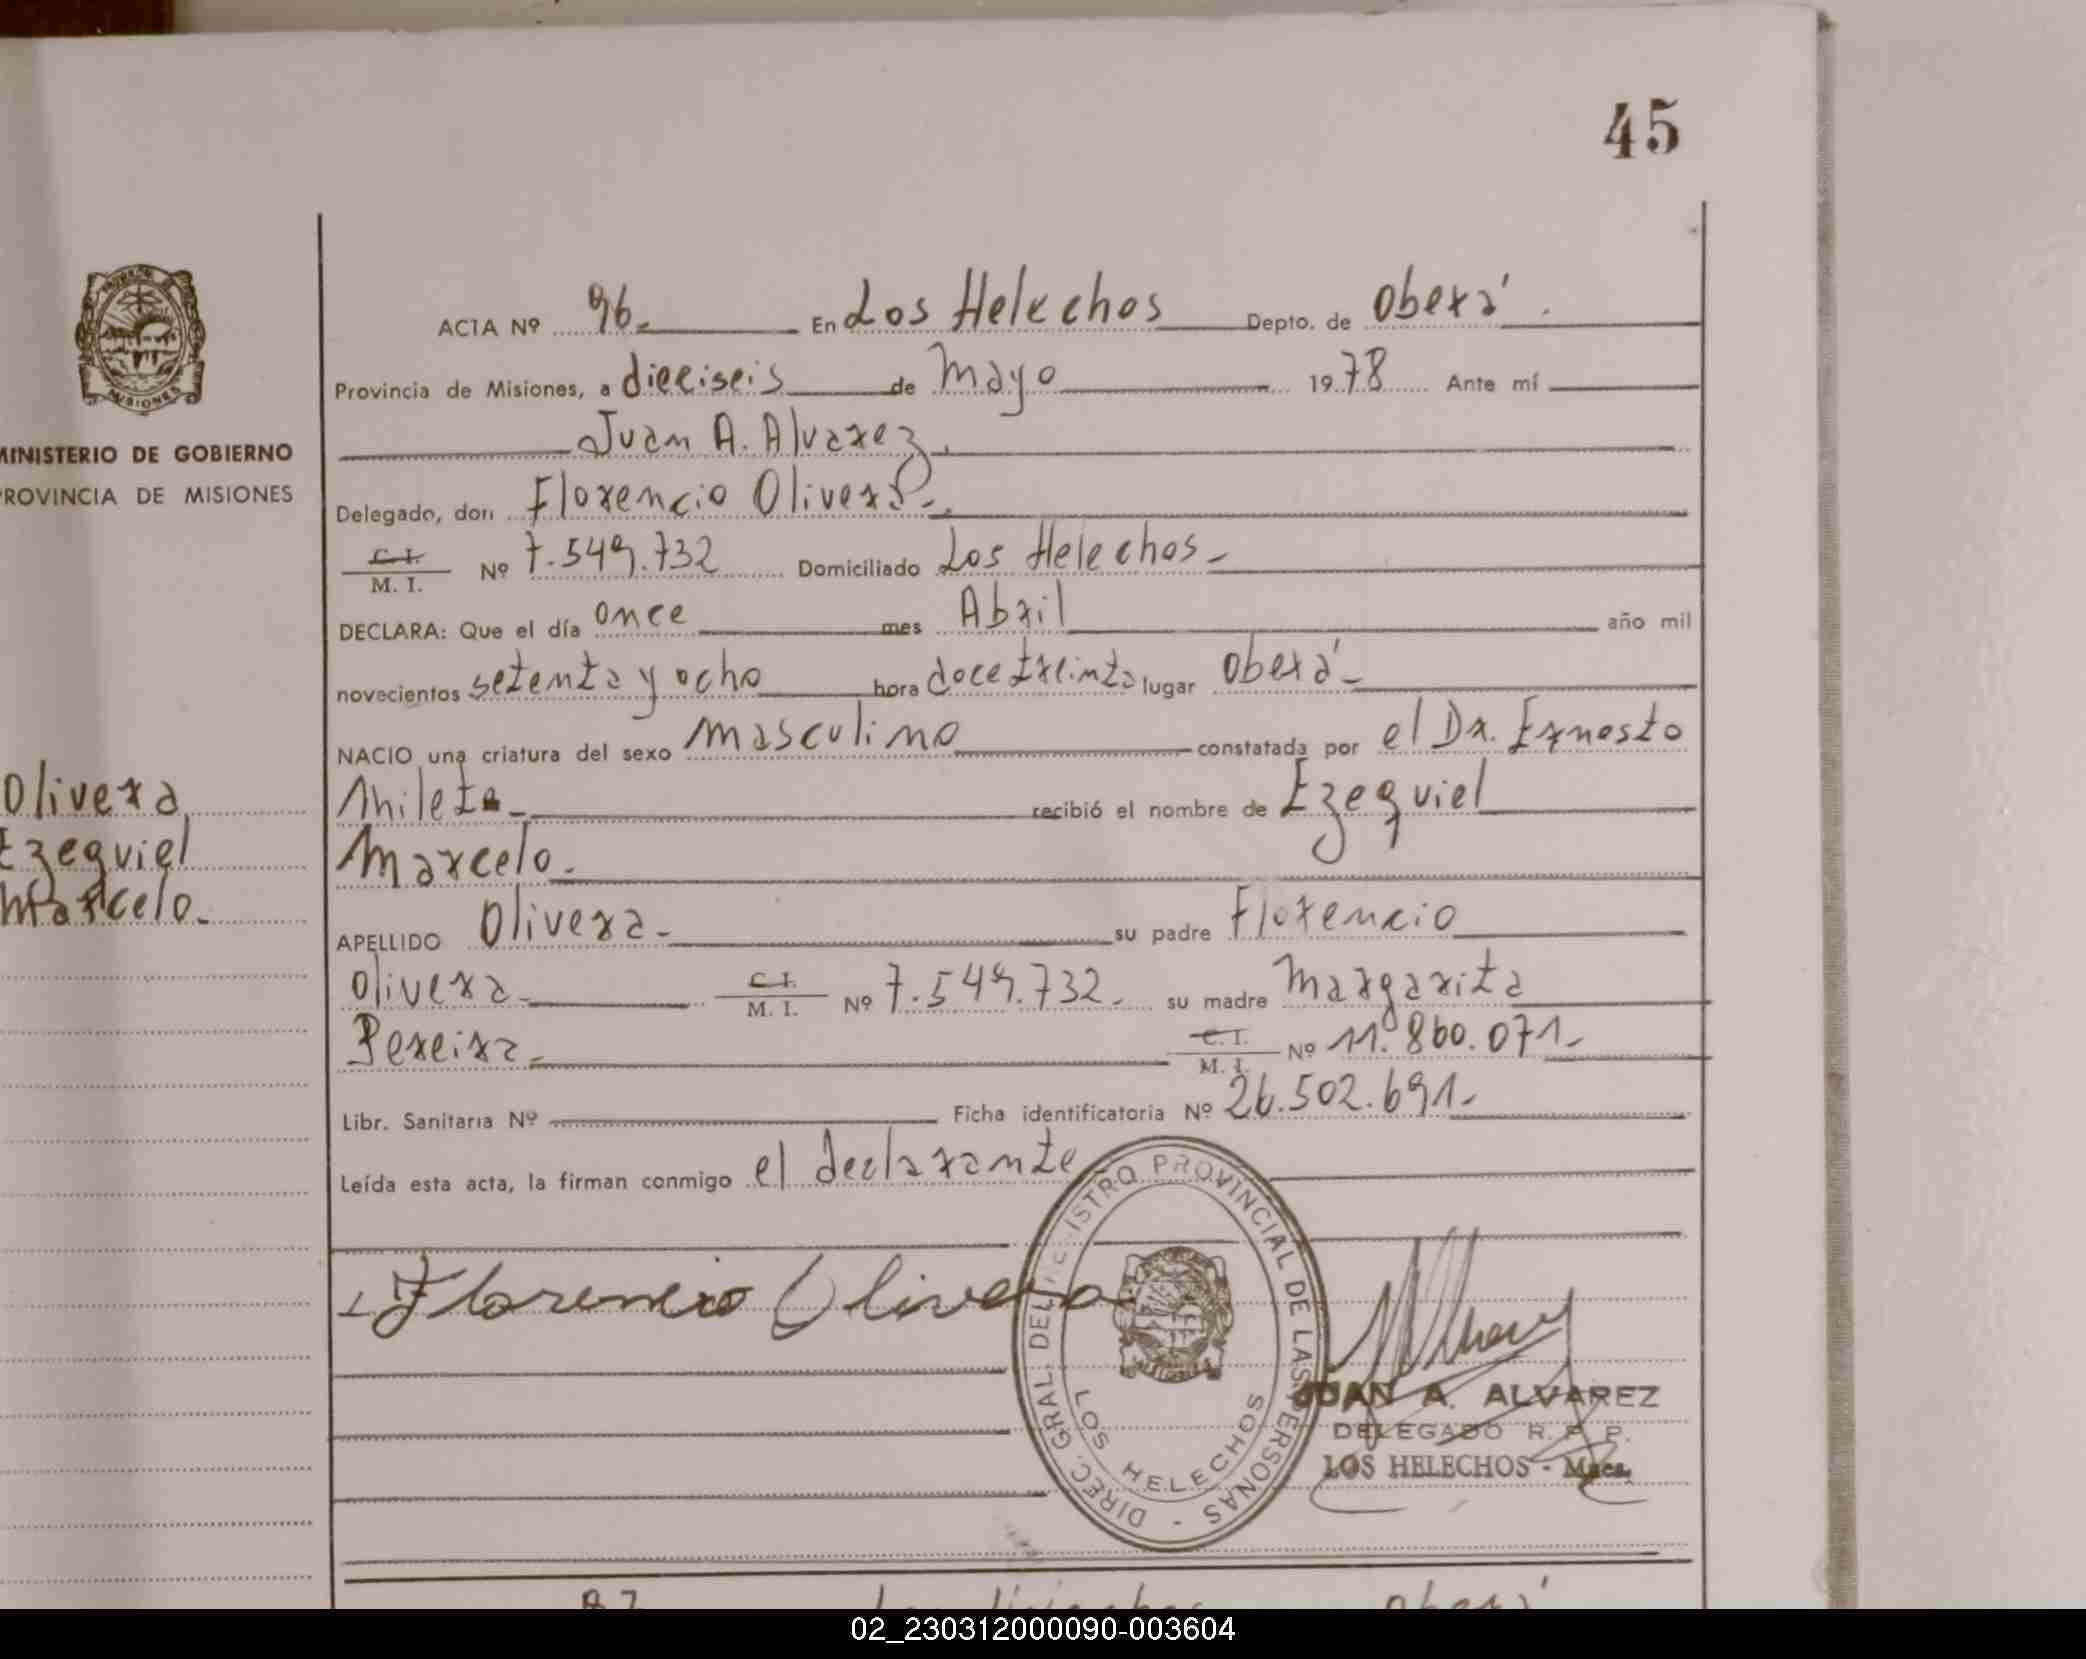 45
ACTA Nº 96. En Los Helechos Depto. de Oberá.
Provincia de Misiones, a dieciseis de Mayo 1978 Ante mí
Juan A. Alvarez.
Delegado, don Florencio Olivera.
C. I. / M. I. Nº 7.549.732 Domiciliado Los Helechos
DECLARA: Que el día once mes Abril año mil
novecientos setenta y ocho hora doce treinta lugar Oberá
NACIO una criatura del sexo masculino constatada por el Dr. Ernesto
Milete recibió el nombre de Ezequiel
Marcelo.
APELLIDO Olivera su padre Florencio
Olivera C. I. / M. I. Nº 7.549.732. su madre Margarita
Pereira C. I. / M. I. Nº 11.860.071
Libr. Sanitaria Nº Ficha identificatoria Nº 26.502.691
Leída esta acta, la firman conmigo el declarante
Florencio Olivera
DIREC. GRAL. DEL REGISTRO PROVINCIAL DE LAS PERSONAS -
LOS HELECHOS
JUAN A. ALVAREZ
DELEGADO R. P. P.
LOS HELECHOS - Mnes.
MISIONES
MINISTERIO DE GOBIERNO
PROVINCIA DE MISIONES
Olivera
Ezequiel
Marcelo.
02_230312000090-003604